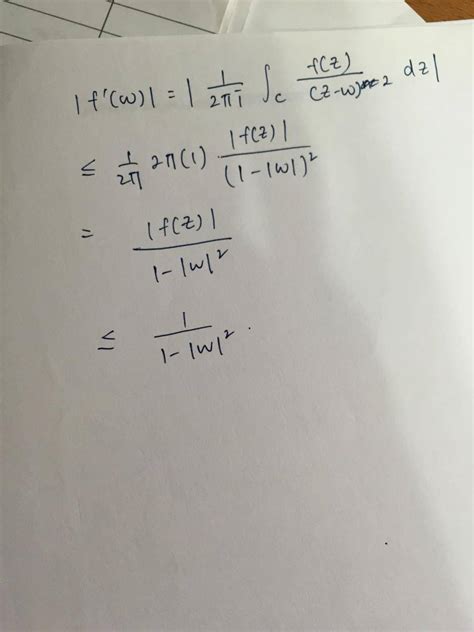 |f'(w)| = | 1/2πi ∫_C f(z)/(z-w)^2 dz |
≤ 1/2π 2π(1) · |f(z)|/(1-|w|)^2
= |f(z)|/1-|w|^2
≤ 1/1-|w|^2 .